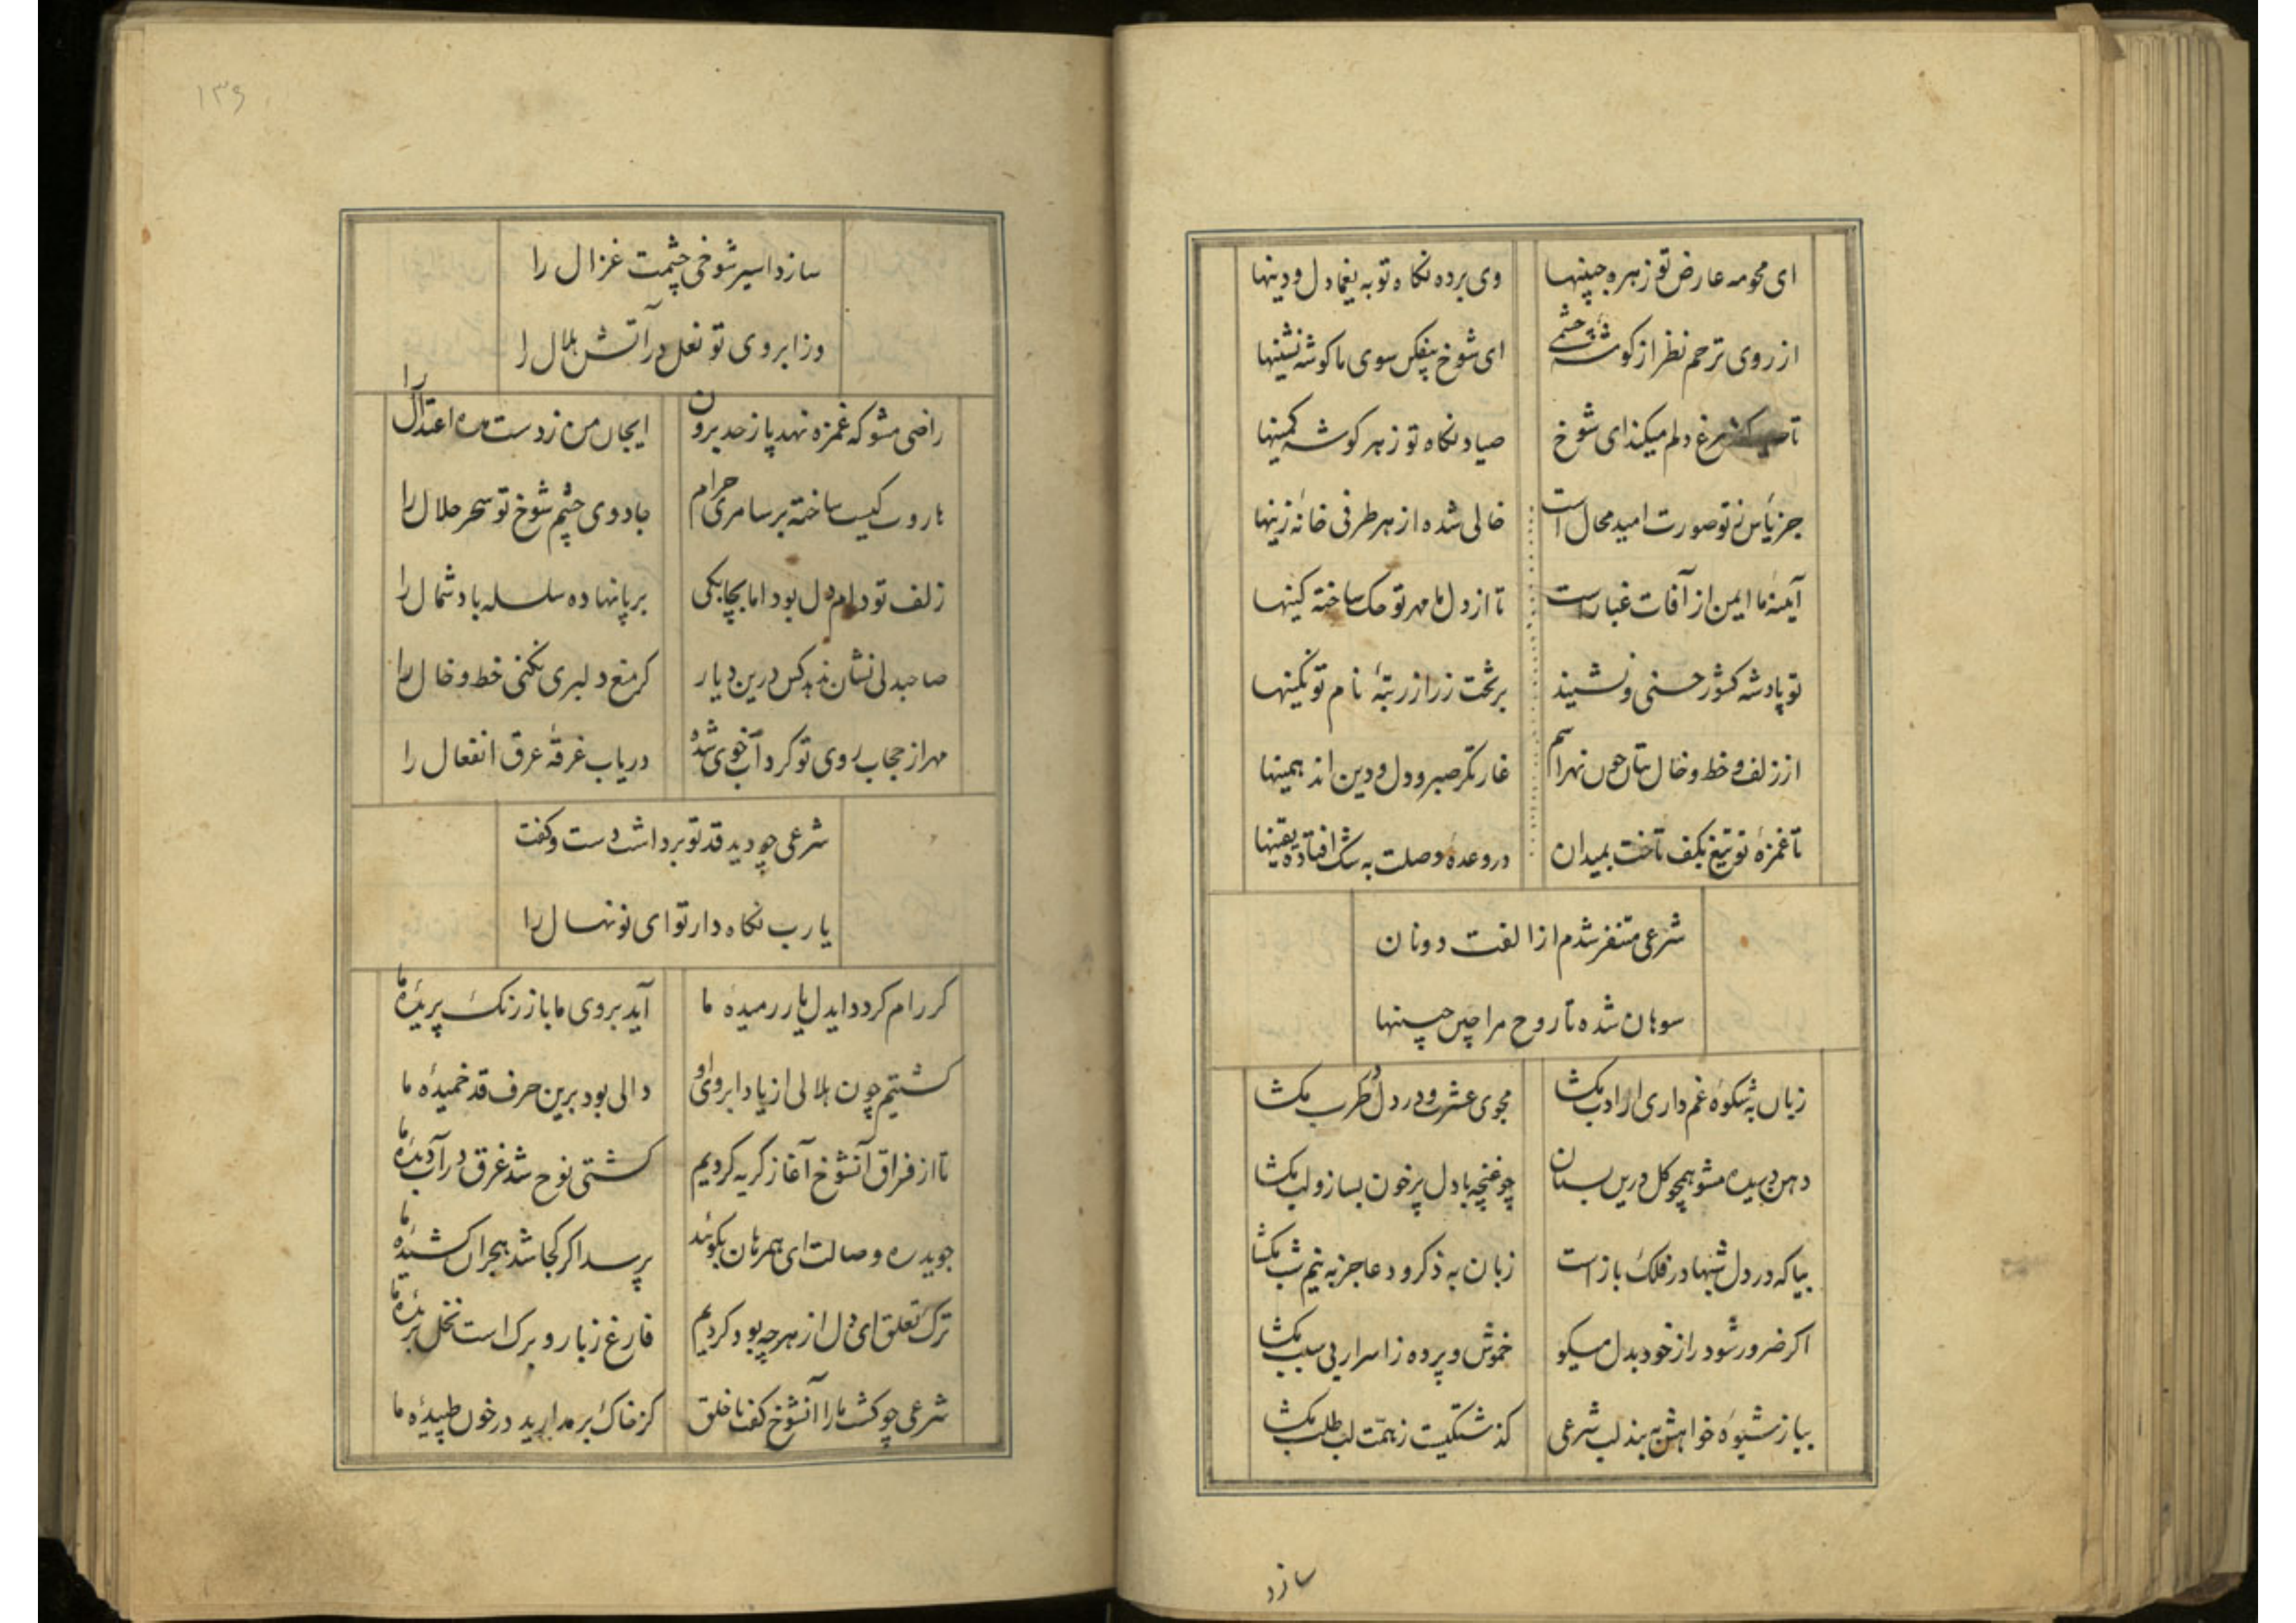 ای محو مه عارض تو زهره جبینها وی برده نگاه تو به یغما دل و دینها
از روی ترحم نظر از کوشهٔ چشمی ای شوخ بیفکن سوی ما کوشه نشینها
تا مرغ دلم میکند ای شوخ صیاد نگاه تو ز هر کوشه کمینها
جز یأس ز تو صورت امید محال است خالی شده از هر طرفی خانهٔ زینها
آیینهٔ ما ایمن از آفات غبار است تا از دل ما مهر تو حک ساخته کینها
تو پادشه کشور حسنی و نشیند بر تخت زر از رتبهٔ نام تو نکینها
از زلف و خط و خال بتان چون نهراسم غارتکر صبر و دل و دین اند همینها
تا غمزهٔ تو تیغ بکف تاخت بمیدان در وعدهٔ وصلت به شک افتاده یقینها
شرعی متنفر شدم از الفت دونان
سوهان شده تا روح مرا چین جبینها
زبان به شکوهٔ غم داری از ادب مکشا مجوی عشرت و در دل در طرب مکشا
دهن دریده مشو همچو کل درین بستان چو غنچه با دل پرخون بساز و لب مکشا
بیا که در دل شبها در فلک باز است زبان به ذکر و دعا جز به نیم شب مکشا
اکر ضرور شود راز خود بدل میکو خموش و پرده ز اسرار بی سبب مکشا
بیا ز شیوهٔ خواهش به بند لب شرعی کذشتکیست ز همّت لب طلب مکشا
سازد
۱۳۶
سازد اسیر شوخی چشمت غزال را
وز ابروی تو نعل در آتش هلال را
راضی مشو که غمزه نهد پا ز حد برون ایجان من ز دست مده اعتدال را
هاروت کیست ساخته بر سامری حرام جادوی چشم شوخ تو سحر حلال را
زلف تو دام دل بود اما بچابکی بر پا نهاده سلسله باد شمال را
صاحبدلی نشان ندهد کس درین دیار کر منع دلبری نکنی خط و خال را
مهر از حجاب روی تو کرد آب خوی شده دریاب غرقهٔ عرق انفعال را
شرعی چو دید قد تو برداشت دست و کفت
یا رب نکاه دار تو ای نونهال را
کر رام کردد ایدل یار رمیدهٔ ما آید بروی ما باز رنک پریدهٔ ما
کشتیم چون هلالی از یاد ابروی او دالی بود برین حرف قد خمیدهٔ ما
تا از فراق آنشوخ آغاز کریه کردیم کشتی نوح شد غرق در آب دیدهٔ ما
جوید ره وصالت ای همرهان بکوئید پرسد اکر کجا شد هجران کشیدهٔ ما
ترک تعلق ای دل از هر چه بود کردیم فارغ ز بار و برک است نخل بریدهٔ ما
شرعی چو کشت ما را آنشوخ کفت با خلق کز خاک بر مدارید در خون طپیدهٔ ما